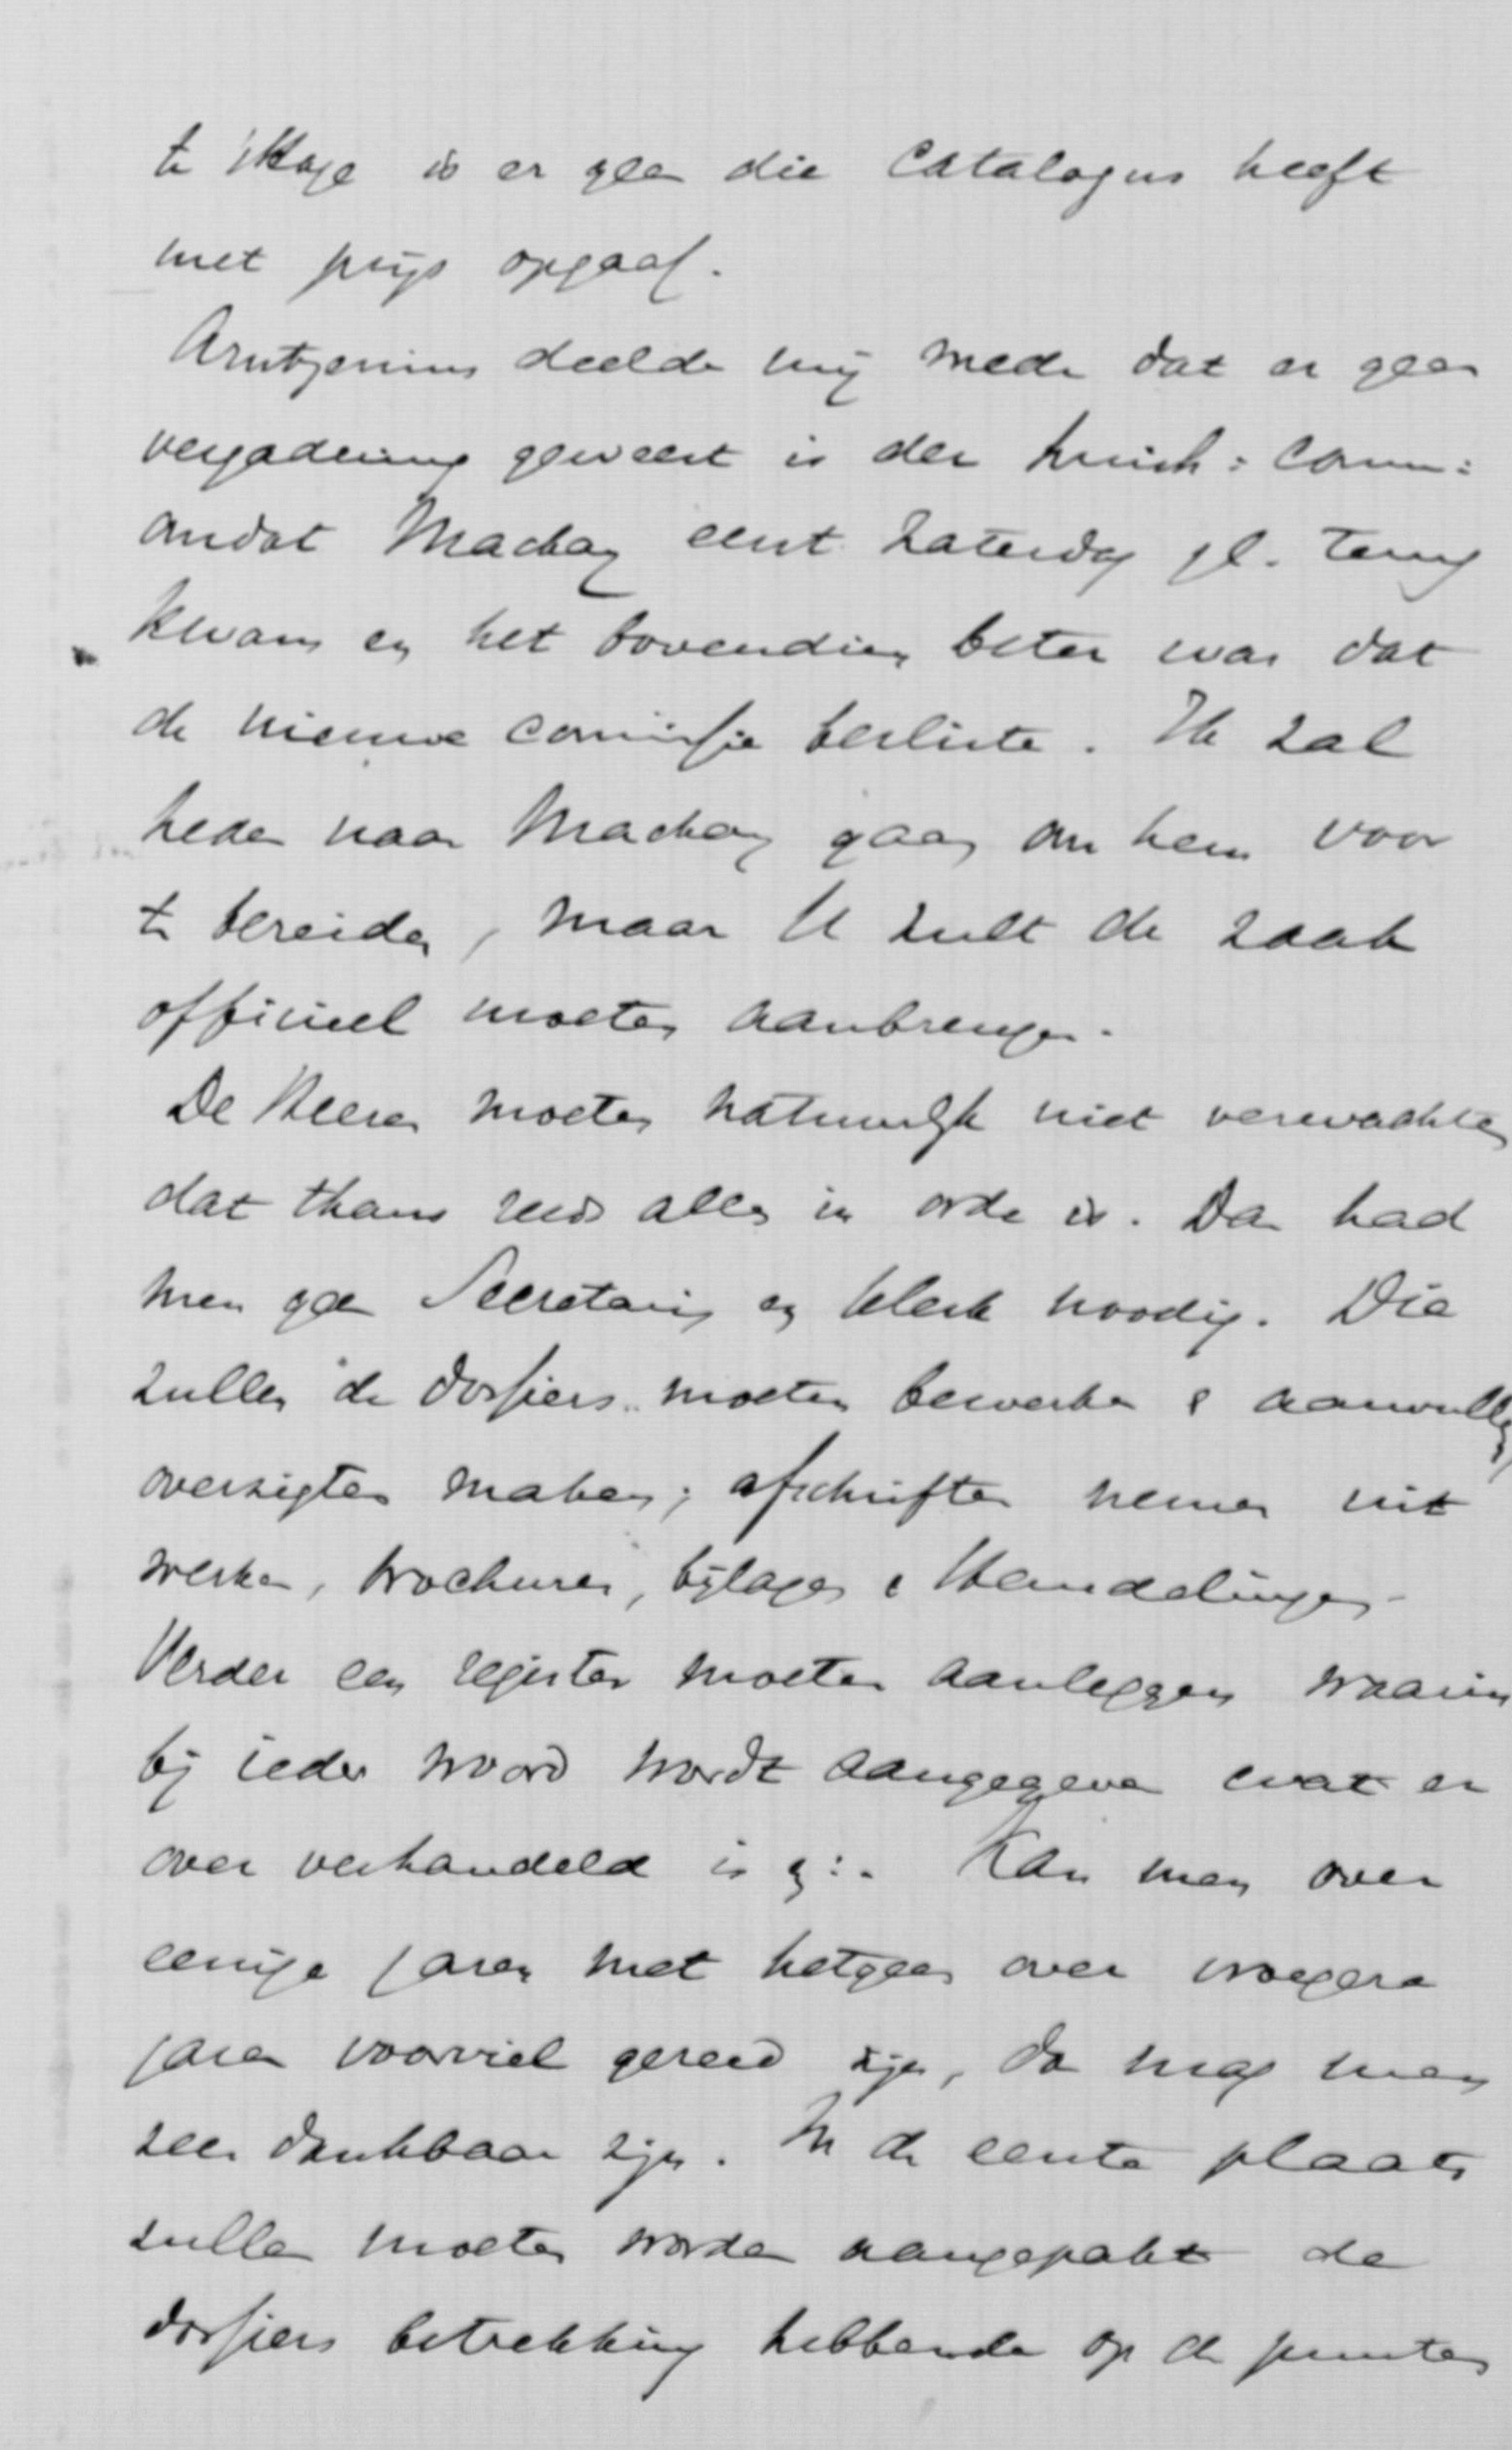 te 'sHage is er geen die Catalogus heeft
met prijs opgaaf.
Arntzenius deelde mij mede dat er geen
vergadering geweest is der huish: Comm:
omdat Mackay eerst Zaterdag jl. terug
kwam en het bovendien beter was dat
de nieuwe commissie besliste. Ik zal
heden naar Mackay gaan om hem voor
te bereiden, maar U zult de zaak
officieel moeten aanbrengen.
De Heeren moeten natuurlijk niet verwachten
dat thans reeds alles in orde is. Dan had
men geen Secretaris en klerk noodig. Die
zullen de dossiers moeten bewerken & aanvullen,
overzigten maken; afschriften nemen uit
werken, brochures, bijlagen & Handelingen.
Verder een register moeten aanleggen waarin
bij ieder woord wordt aangegeven wat er
over verhandeld is enz:. Kan men over
eenige jaren met hetgeen over vroegere
jaren voorviel gereed zijn, dan mag men
zeer dankbaar zijn. In de eerste plaats
zullen moeten worden aangepakt de
dossiers betrekking hebbende op de punten